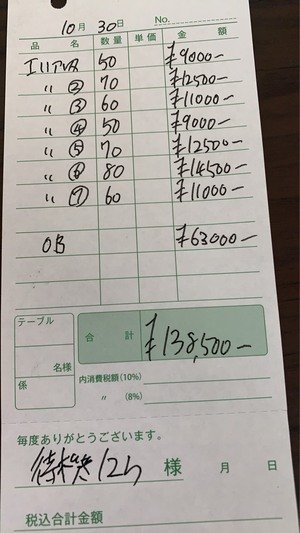 10月30日 No.
品名 数量 単価 金額
50 ¥9000-
〃 ② 70 ¥12500-
〃 ③ 60 ¥11000-
〃 ④ 50 ¥9000-
〃 ⑤ 70 ¥12500-
〃 ⑥ 80 ¥14500-
〃 ⑦ 60 ¥11000-
OB ¥63000-
テーブル
名様
係
合計 ¥138,500-
内消費税額(10%)
〃 (8%)
毎度ありがとうございます。
様 月 日
税込合計金額